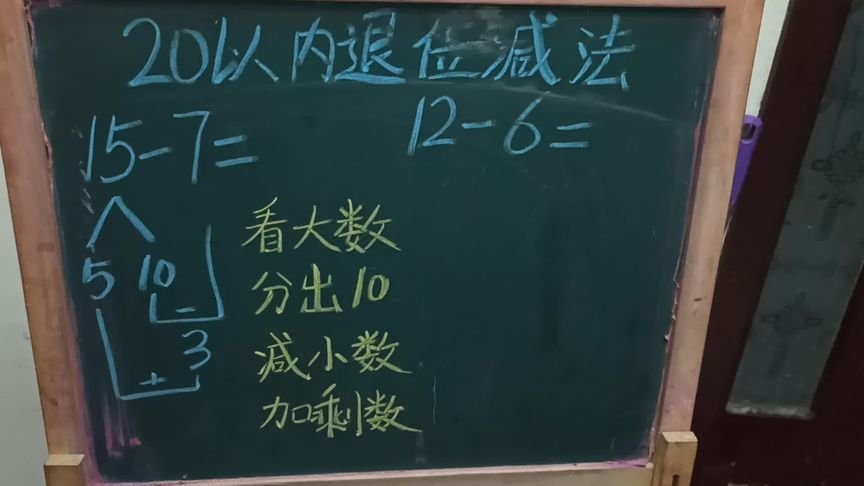 20以内退位减法
15-7=
12-6=
5 10
-
3
+
看大数
分出10
减小数
加剩数